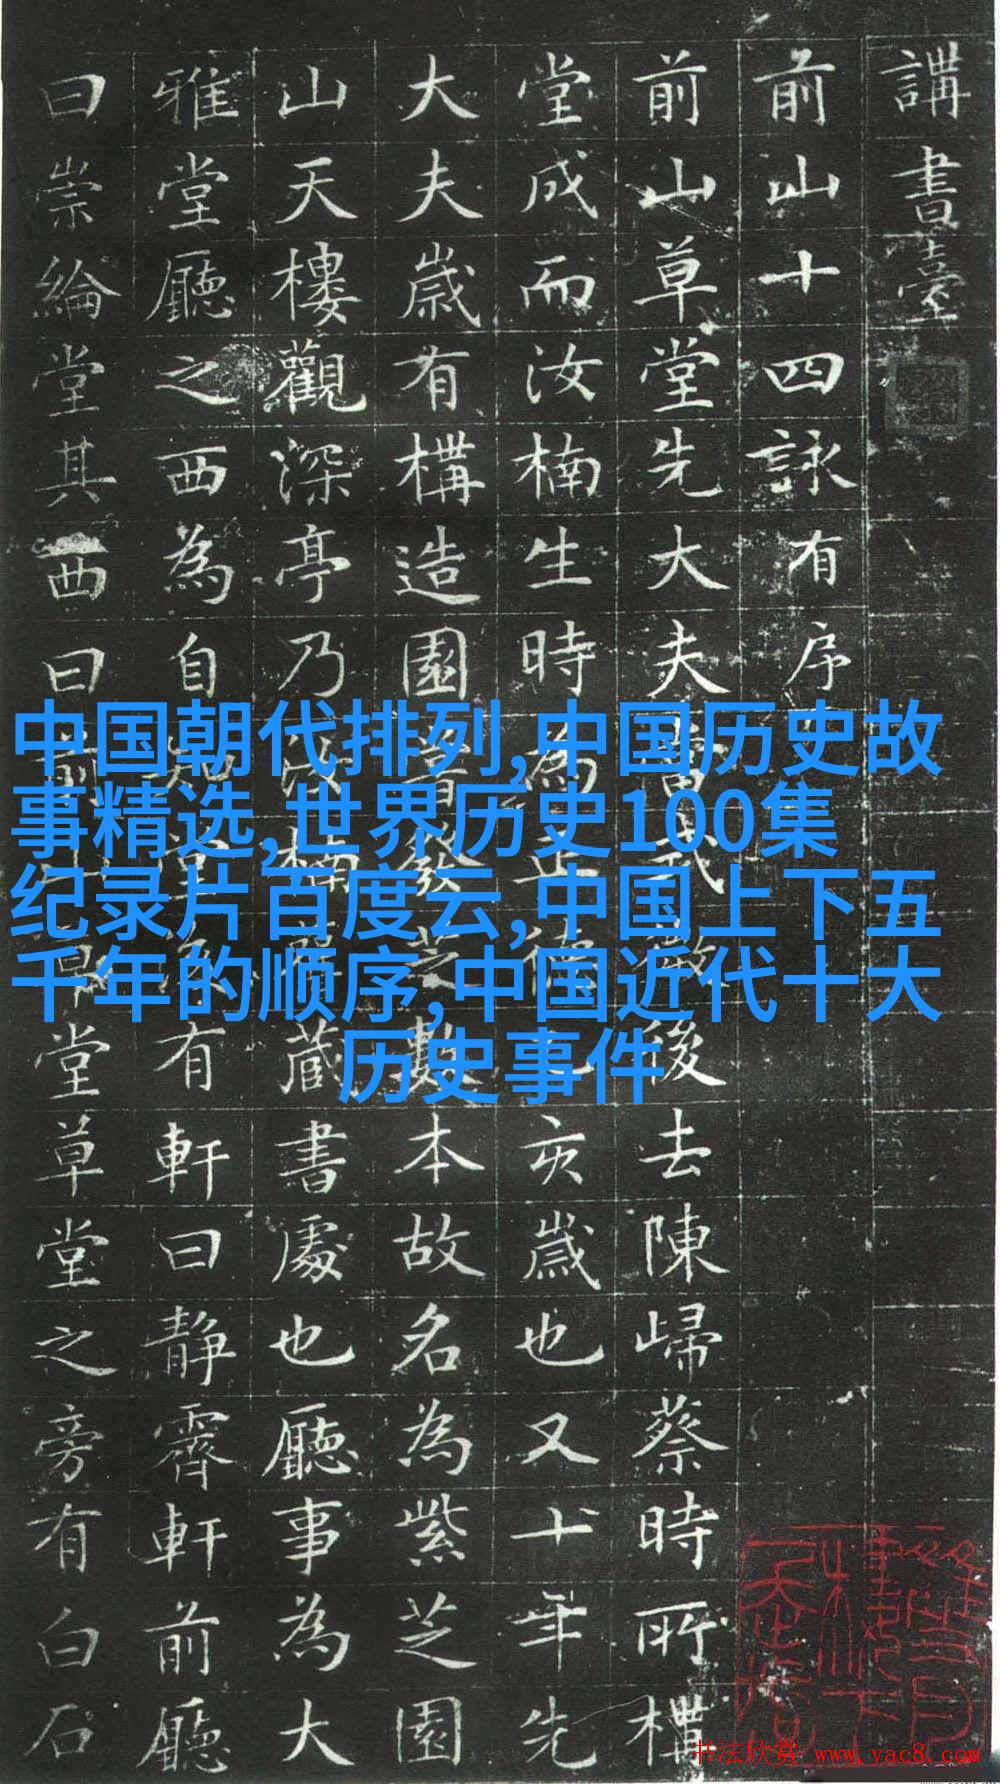 講書臺
前山十四詠有序
前山草堂先大夫後去陳歸蔡時所構
堂成而汝楠生時為亥歲也又十年先
大夫歲有構造園數本故名為紫芝園
山天樓觀深亭乃楠藏書處也廳事為大
雅堂廳之西為自有軒曰静霽軒前廳
曰崇綸堂其西曰前堂草堂之旁有白石
中国朝代排列,中国历史故
事精选,世界历史100集
纪录片百度云,中国上下五
千年的顺序,中国近代十大
历史事件
书法欣赏 www.yac8.com